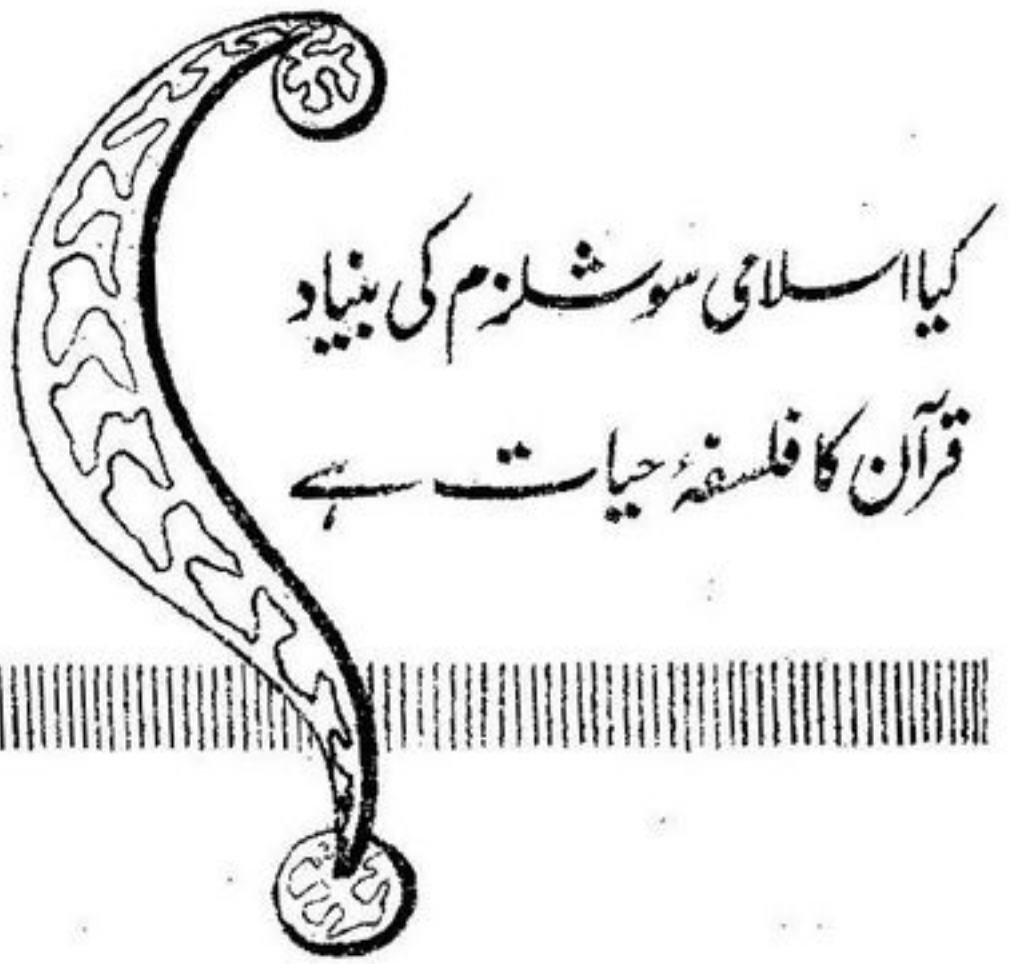 کیا اسلامی سوشلزم کی بنیاد
قرآن کا فلسفۂ حیات ہے ؟